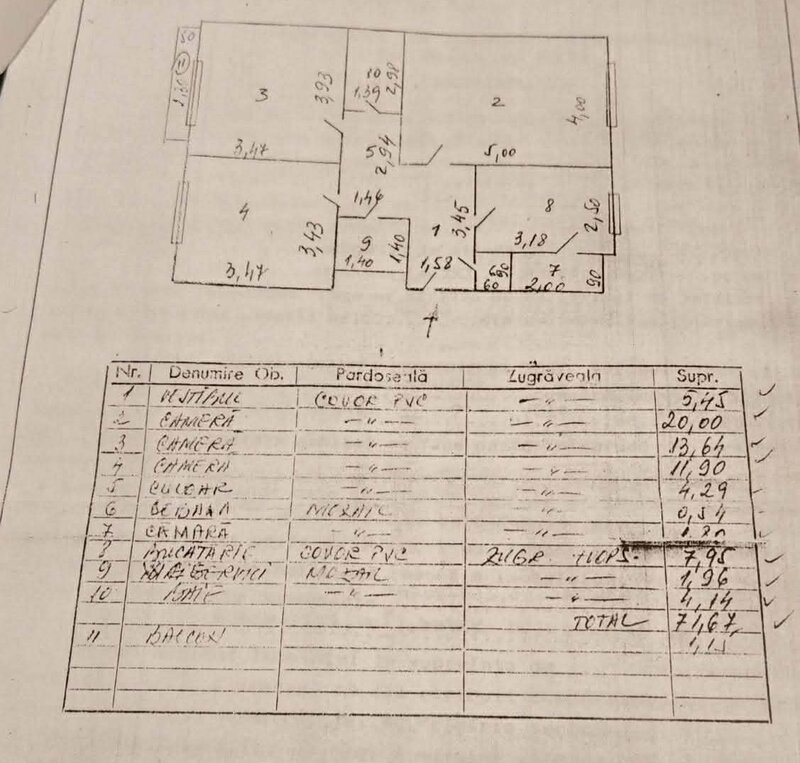 50
2,30
11
3
3,93
3,47
10
1,39
2,98
2
4,00
5,00
5
2,94
1,46
4
3,43
3,47
9
1,40
1,40
1
3,45
1,58
8
3,18
2,50
6
60
90
7
2,00
90
Nr. Denumire Ob. Pardoseală Zugrăveala Supr.
1 VESTIBUL COVOR PVC —"— 5,45
2 CAMERĂ —"— —"— 20,00
3 CAMERĂ —"— —"— 13,64
4 CAMERA —"— —"— 11,90
5 CULOAR —"— —"— 4,29
6 DEBARA MOZAIC —"— 0,54
7 CĂMARĂ —"— —"— 1,80
8 BUCĂTĂRIE COVOR PVC ZUGR. 7,95
9 SERVICI MOZAIC —"— 1,96
10 BAIE —"— —"— 4,14
TOTAL 71,67
11 BALCON 1,15